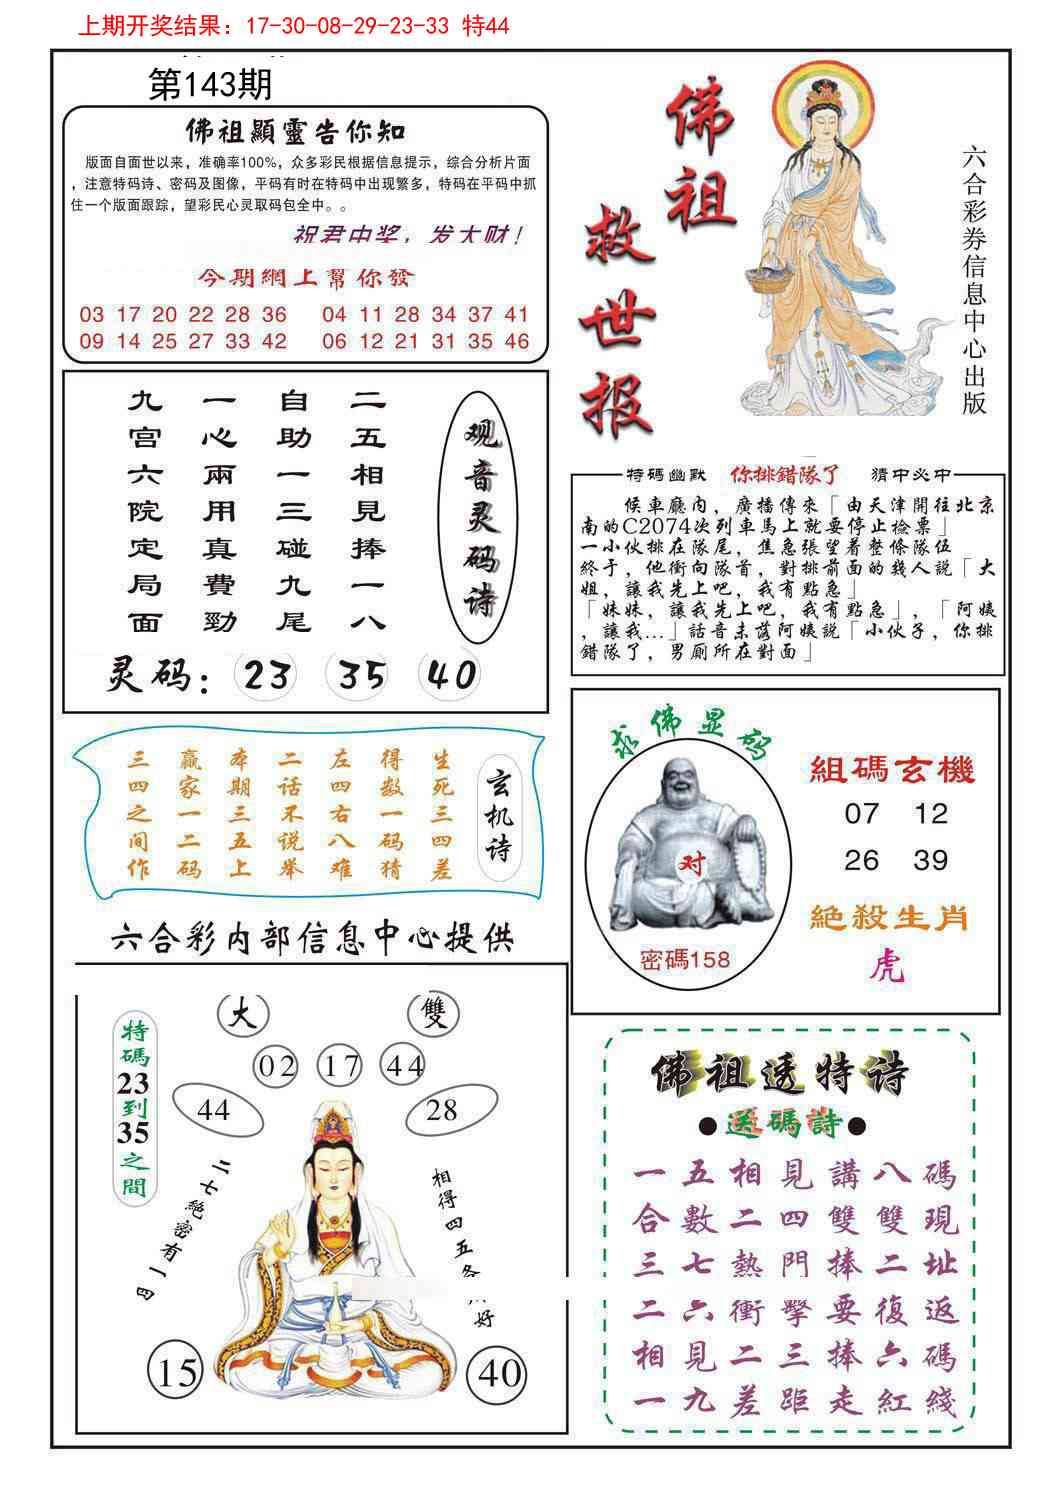 上期开奖结果：17-30-08-29-23-33 特44
第143期
佛祖顯靈告你知
版面自面世以来，准确率100%，众多彩民根据信息提示，综合分析片面
，注意特码诗、密码及图像，平码有时在特码中出现繁多，特码在平码中抓
住一个版面跟踪，望彩民心灵取码包全中。。
祝君中奖，发大财！
今期網上幫你發
03 17 20 22 28 36 04 11 28 34 37 41
09 14 25 27 33 42 06 12 21 31 35 46
佛祖
救世报
六合彩券信息中心出版
观音灵码诗
二五相見捧一八
自助一三碰九尾
一心兩用真費勁
九宫六院定局面
灵码：23 35 40
特碼幽默 你排錯隊了 猜中必中
侯車廳内，廣播傳來「由天津開往北京
南的C2074次列車馬上就要停止檢票」
一小伙排在隊尾，焦急張望着整條隊伍
終于，他衝向隊首，對排前面的幾人説「大
姐，讓我先上吧，我有點急」
「妹妹，讓我先上吧，我有點急」，「阿姨
，讓我...」話音未落阿姨説「小伙子，你排
錯隊了，男厠所在對面」
玄机诗
生死三四差
得数一码猜
左四右八难
二话不说举
本期三五上
赢家一二码
三四之间作
求佛显码
对
密碼158
組碼玄機
07 12
26 39
絶殺生肖
虎
六合彩内部信息中心提供
特碼23到35之間
大 雙
02 17 44
44 28
二七絶密有一四
相得四五
好
15 40
佛祖透特诗
●送碼詩●
一五相見講八碼
合數二四雙雙現
三七熱門捧二址
二六衝擊要復返
相見二三捧六碼
一九差距走紅綫